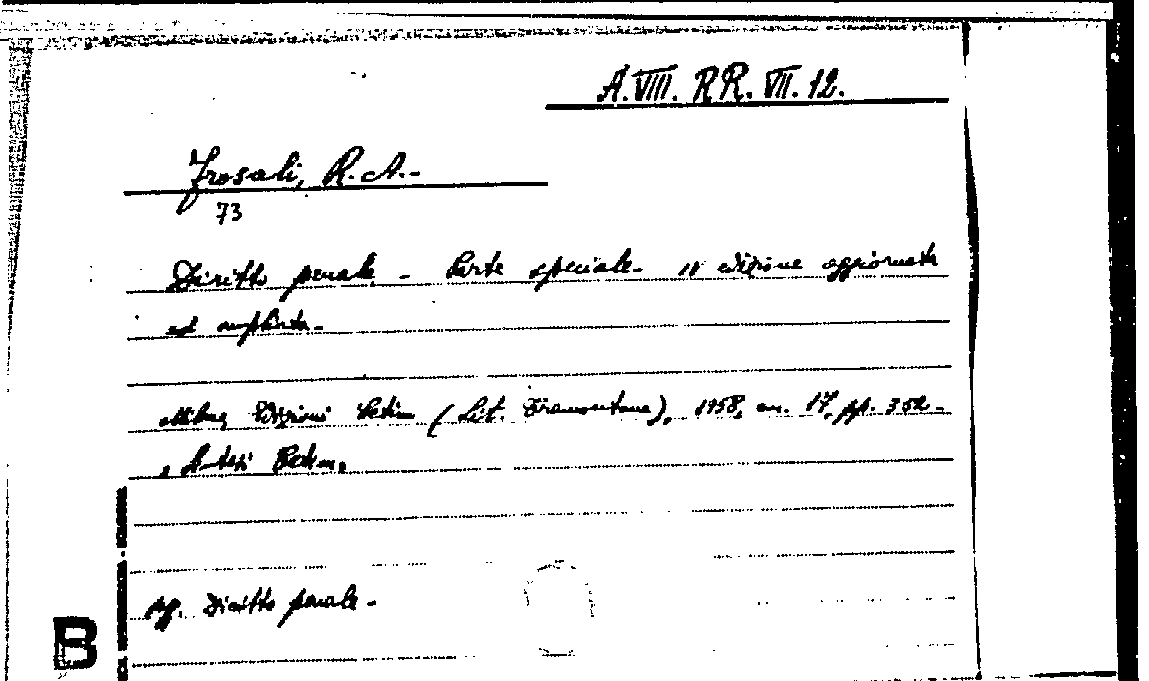 A.VIII. RR. VII. 12.
Frosali, R. A.-
73
Diritto penale - Parte speciale. II edizione aggiornata
ed ampliata.
Edizioni (Lit. Tramontana), 1958, cm. 17, pp. 352.
sgg. Diritto penale -
B